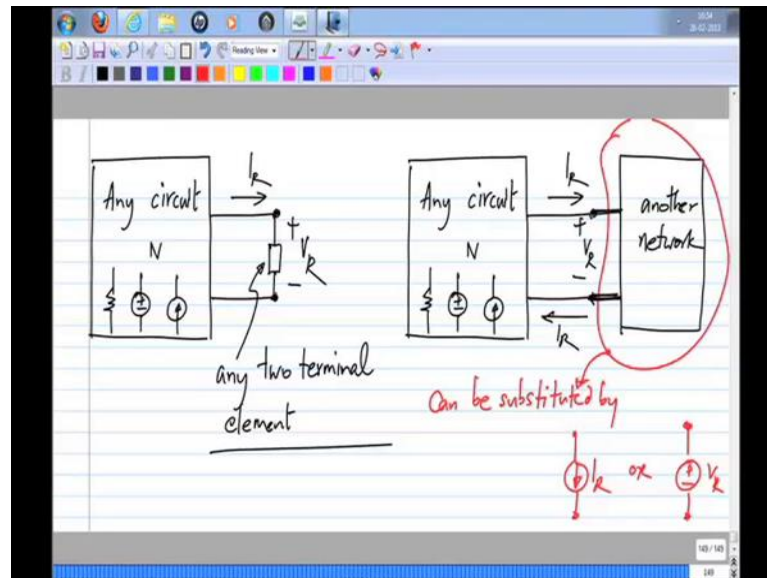 16:54
Reading View
B I
I_R
Any circuit
N
+
V_R
-
any two terminal
element
I_R
Any circuit
N
+
V_R
-
I_R
another
network
Can be substituted by
I_R or + - V_R
149 / 149
149